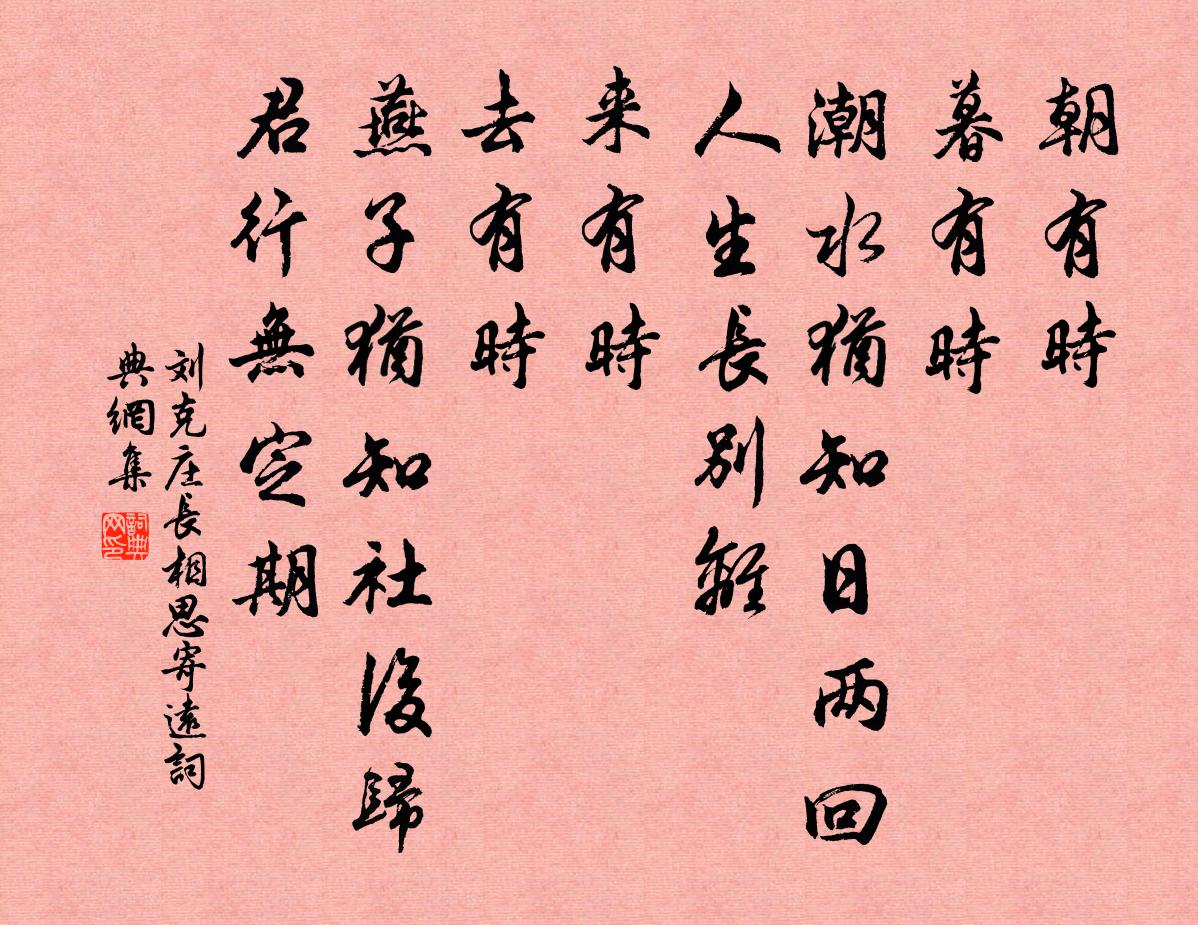 朝有時
暮有時
潮水猶知日两回
人生長別離
来有時
去有時
燕子猶知社後歸
君行無定期
刘克庄長相思寄遠詞
典網集
詞典网印